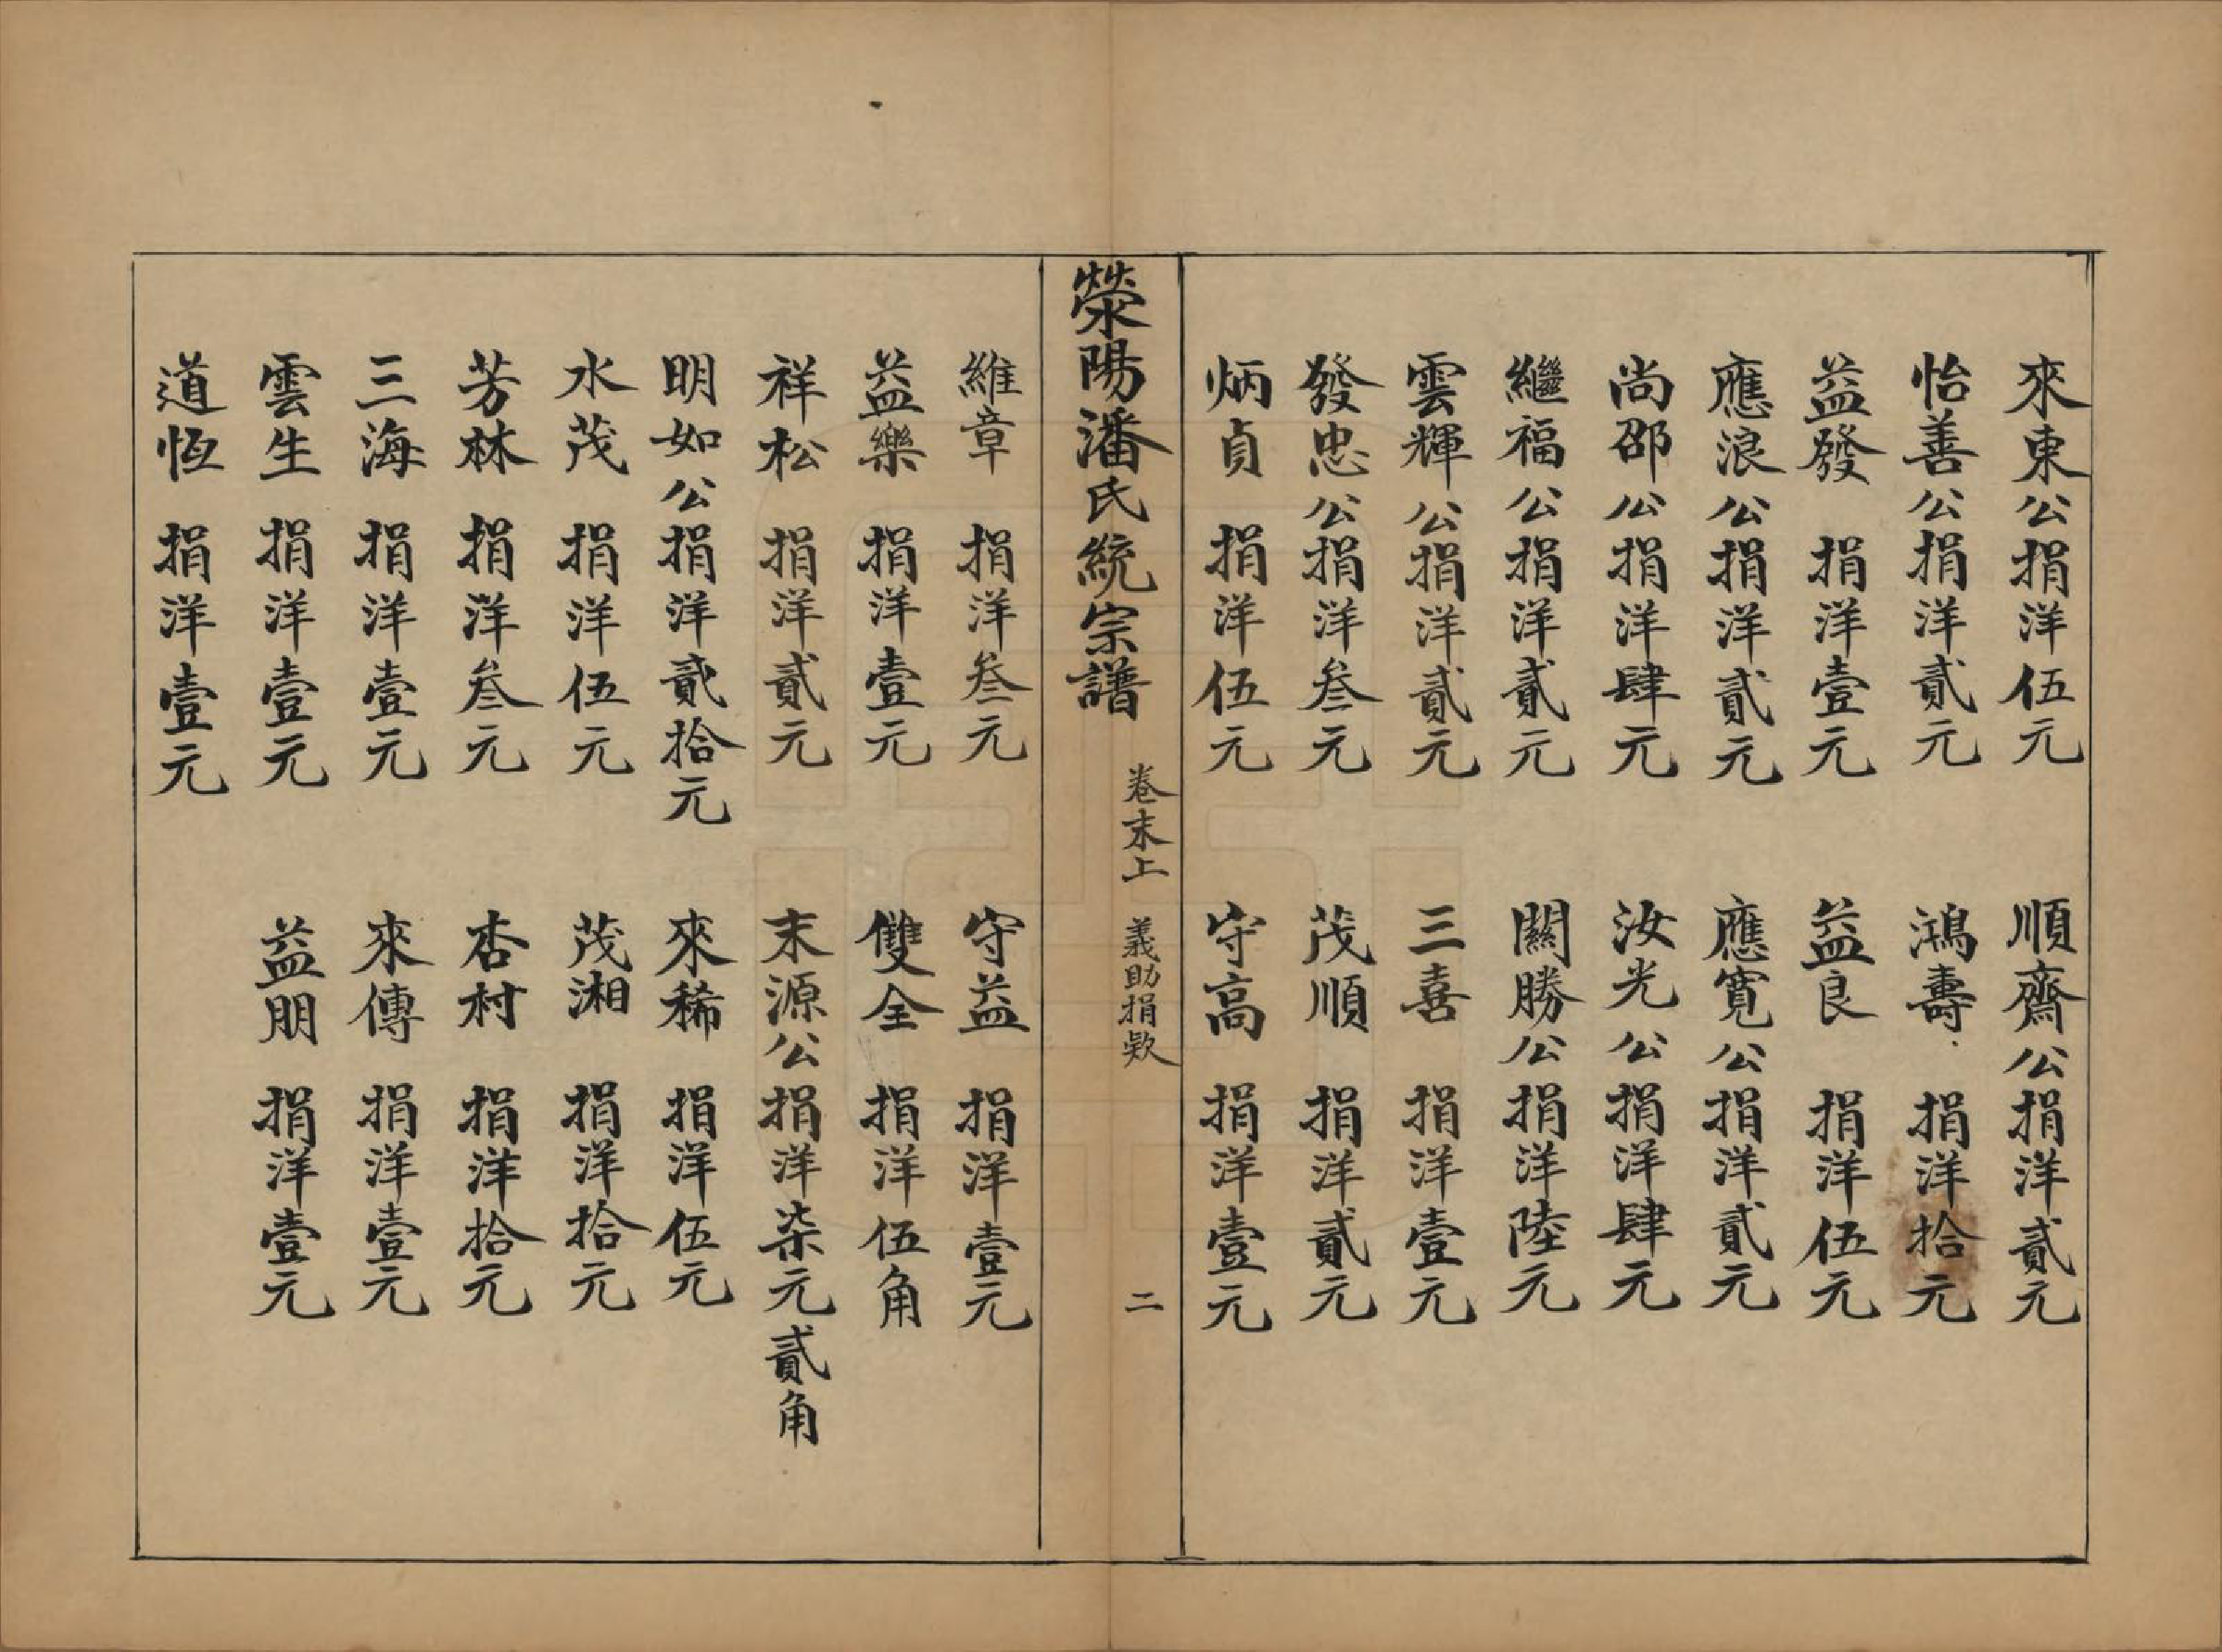 來東公捐洋伍元　順齋公捐洋貳元
怡善公捐洋貳元　鴻壽　捐洋拾元
益發　捐洋壹元　益良　捐洋伍元
應浪公捐洋貳元　應寬公捐洋貳元
尚邵公捐洋肆元　汝光公捐洋肆元
繼福公捐洋貳元　關勝公捐洋陸元
雲輝公捐洋貳元　三喜　捐洋壹元
發忠公捐洋叁元　茂順　捐洋貳元
炳貞　捐洋伍元　守高　捐洋壹元
滎陽潘氏統宗譜　卷末上　義助捐欵　二
維章　捐洋叁元　守益　捐洋壹元
益樂　捐洋壹元　雙全　捐洋伍角
祥松　捐洋貳元　末源公捐洋柒元貳角
明如公捐洋貳拾元　來稀　捐洋伍元
水茂　捐洋伍元　茂湘　捐洋拾元
芳林　捐洋叁元　杏村　捐洋拾元
三海　捐洋壹元　來傳　捐洋壹元
雲生　捐洋壹元　益朋　捐洋壹元
道恆　捐洋壹元